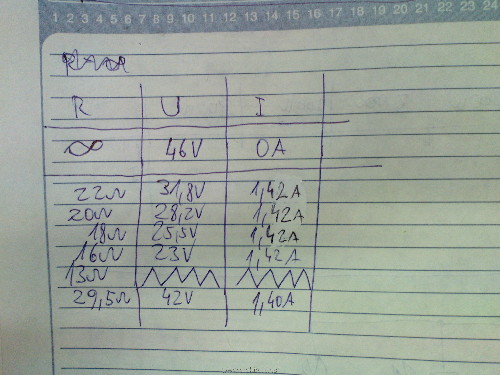 1 2 3 4 5 6 7 8 9 10 11 12 13 14 15 16 17 18 19 20 21 22 23 24
R U I
∞ 46V 0A
22Ω 31,8V 1,42A
20Ω 28,2V 1,42A
18Ω 25,5V 1,42A
16Ω 23V 1,42A
13Ω
29,5Ω 42V 1,40A